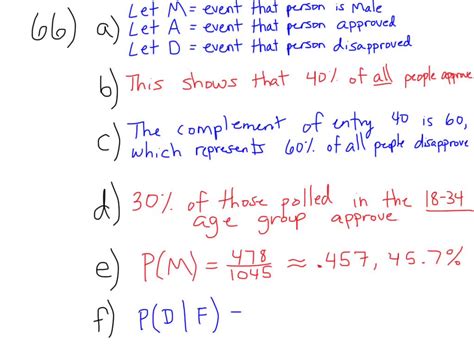 66) a) Let M = event that person is Male
Let A = event that person approved
Let D = event that person disapproved
b) This shows that 40% of all people approve
c) The complement of entry 40 is 60,
which represents 60% of all people disapprove
d) 30% of those polled in the 18-34
age group approve
e) P(M) = 478/1045 ≈ .457, 45.7%
f) P(D|F) =